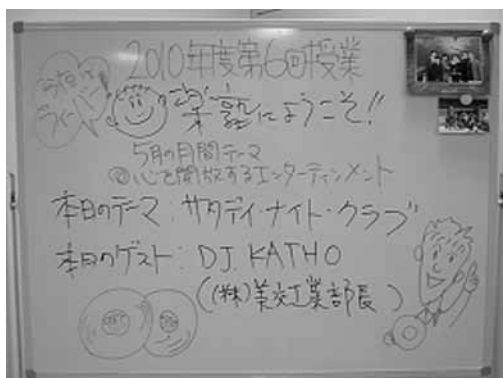 2010年度第6回授業
楽塾にようこそ!!
5月の月間テーマ
◎心を開放するエンターティンメント
本日のテーマ:サタデイ・ナイト・クラブ
本日のゲスト:DJ.KATHO
((株)美交工業部長)